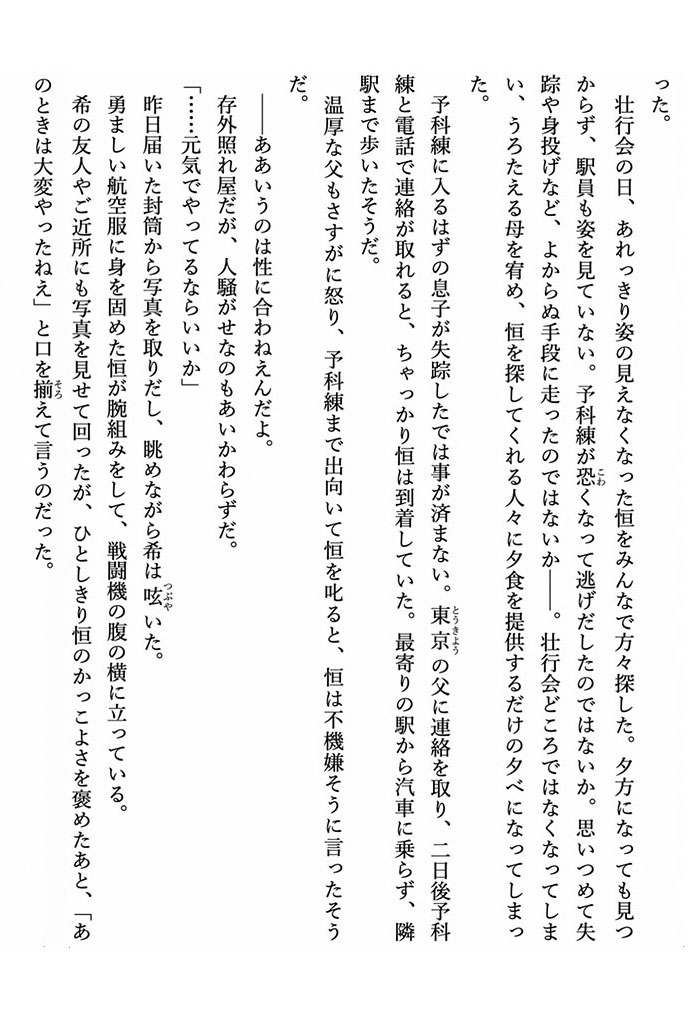 った。
　壮行会の日、あれっきり姿の見えなくなった恒をみんなで方々探した。夕方になっても見つ
からず、駅員も姿を見ていない。予科練が恐くなって逃げだしたのではないか。思いつめて失
踪や身投げなど、よからぬ手段に走ったのではないか――。壮行会どころではなくなってしま
い、うろたえる母を宥め、恒を探してくれる人々に夕食を提供するだけの夕べになってしまっ
た。
　予科練に入るはずの息子が失踪したでは事が済まない。東京の父に連絡を取り、二日後予科
練と電話で連絡が取れると、ちゃっかり恒は到着していた。最寄りの駅から汽車に乗らず、隣
駅まで歩いたそうだ。
　温厚な父もさすがに怒り、予科練まで出向いて恒を叱ると、恒は不機嫌そうに言ったそう
だ。
　――ああいうのは性に合わねえんだよ。
　存外照れ屋だが、人騒がせなのもあいかわらずだ。
「……元気でやってるならいいか」
　昨日届いた封筒から写真を取りだし、眺めながら希は呟いた。
　勇ましい航空服に身を固めた恒が腕組みをして、戦闘機の腹の横に立っている。
　希の友人やご近所にも写真を見せて回ったが、ひとしきり恒のかっこよさを褒めたあと、「あ
のときは大変やったねえ」と口を揃えて言うのだった。